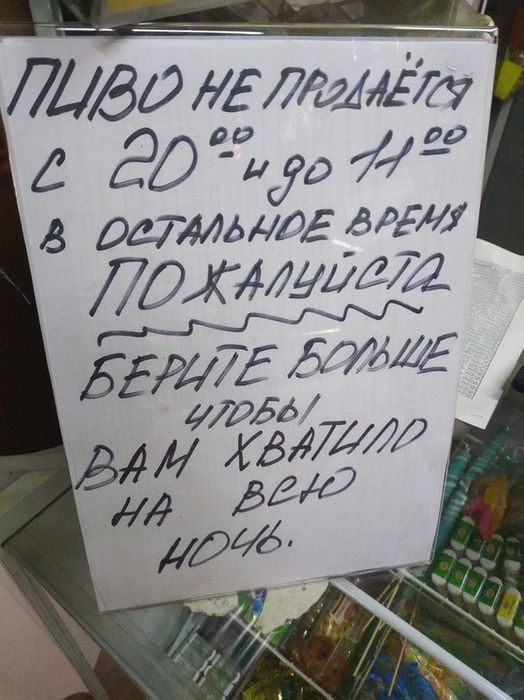 ПИВО НЕ ПРОДАЁТСЯ
С 20⁰⁰ И ДО 11⁰⁰
В ОСТАЛЬНОЕ ВРЕМЯ
ПОЖАЛУЙСТА
БЕРИТЕ БОЛЬШЕ
ЧТОБЫ
ВАМ ХВАТИЛО
НА ВСЮ
НОЧЬ.